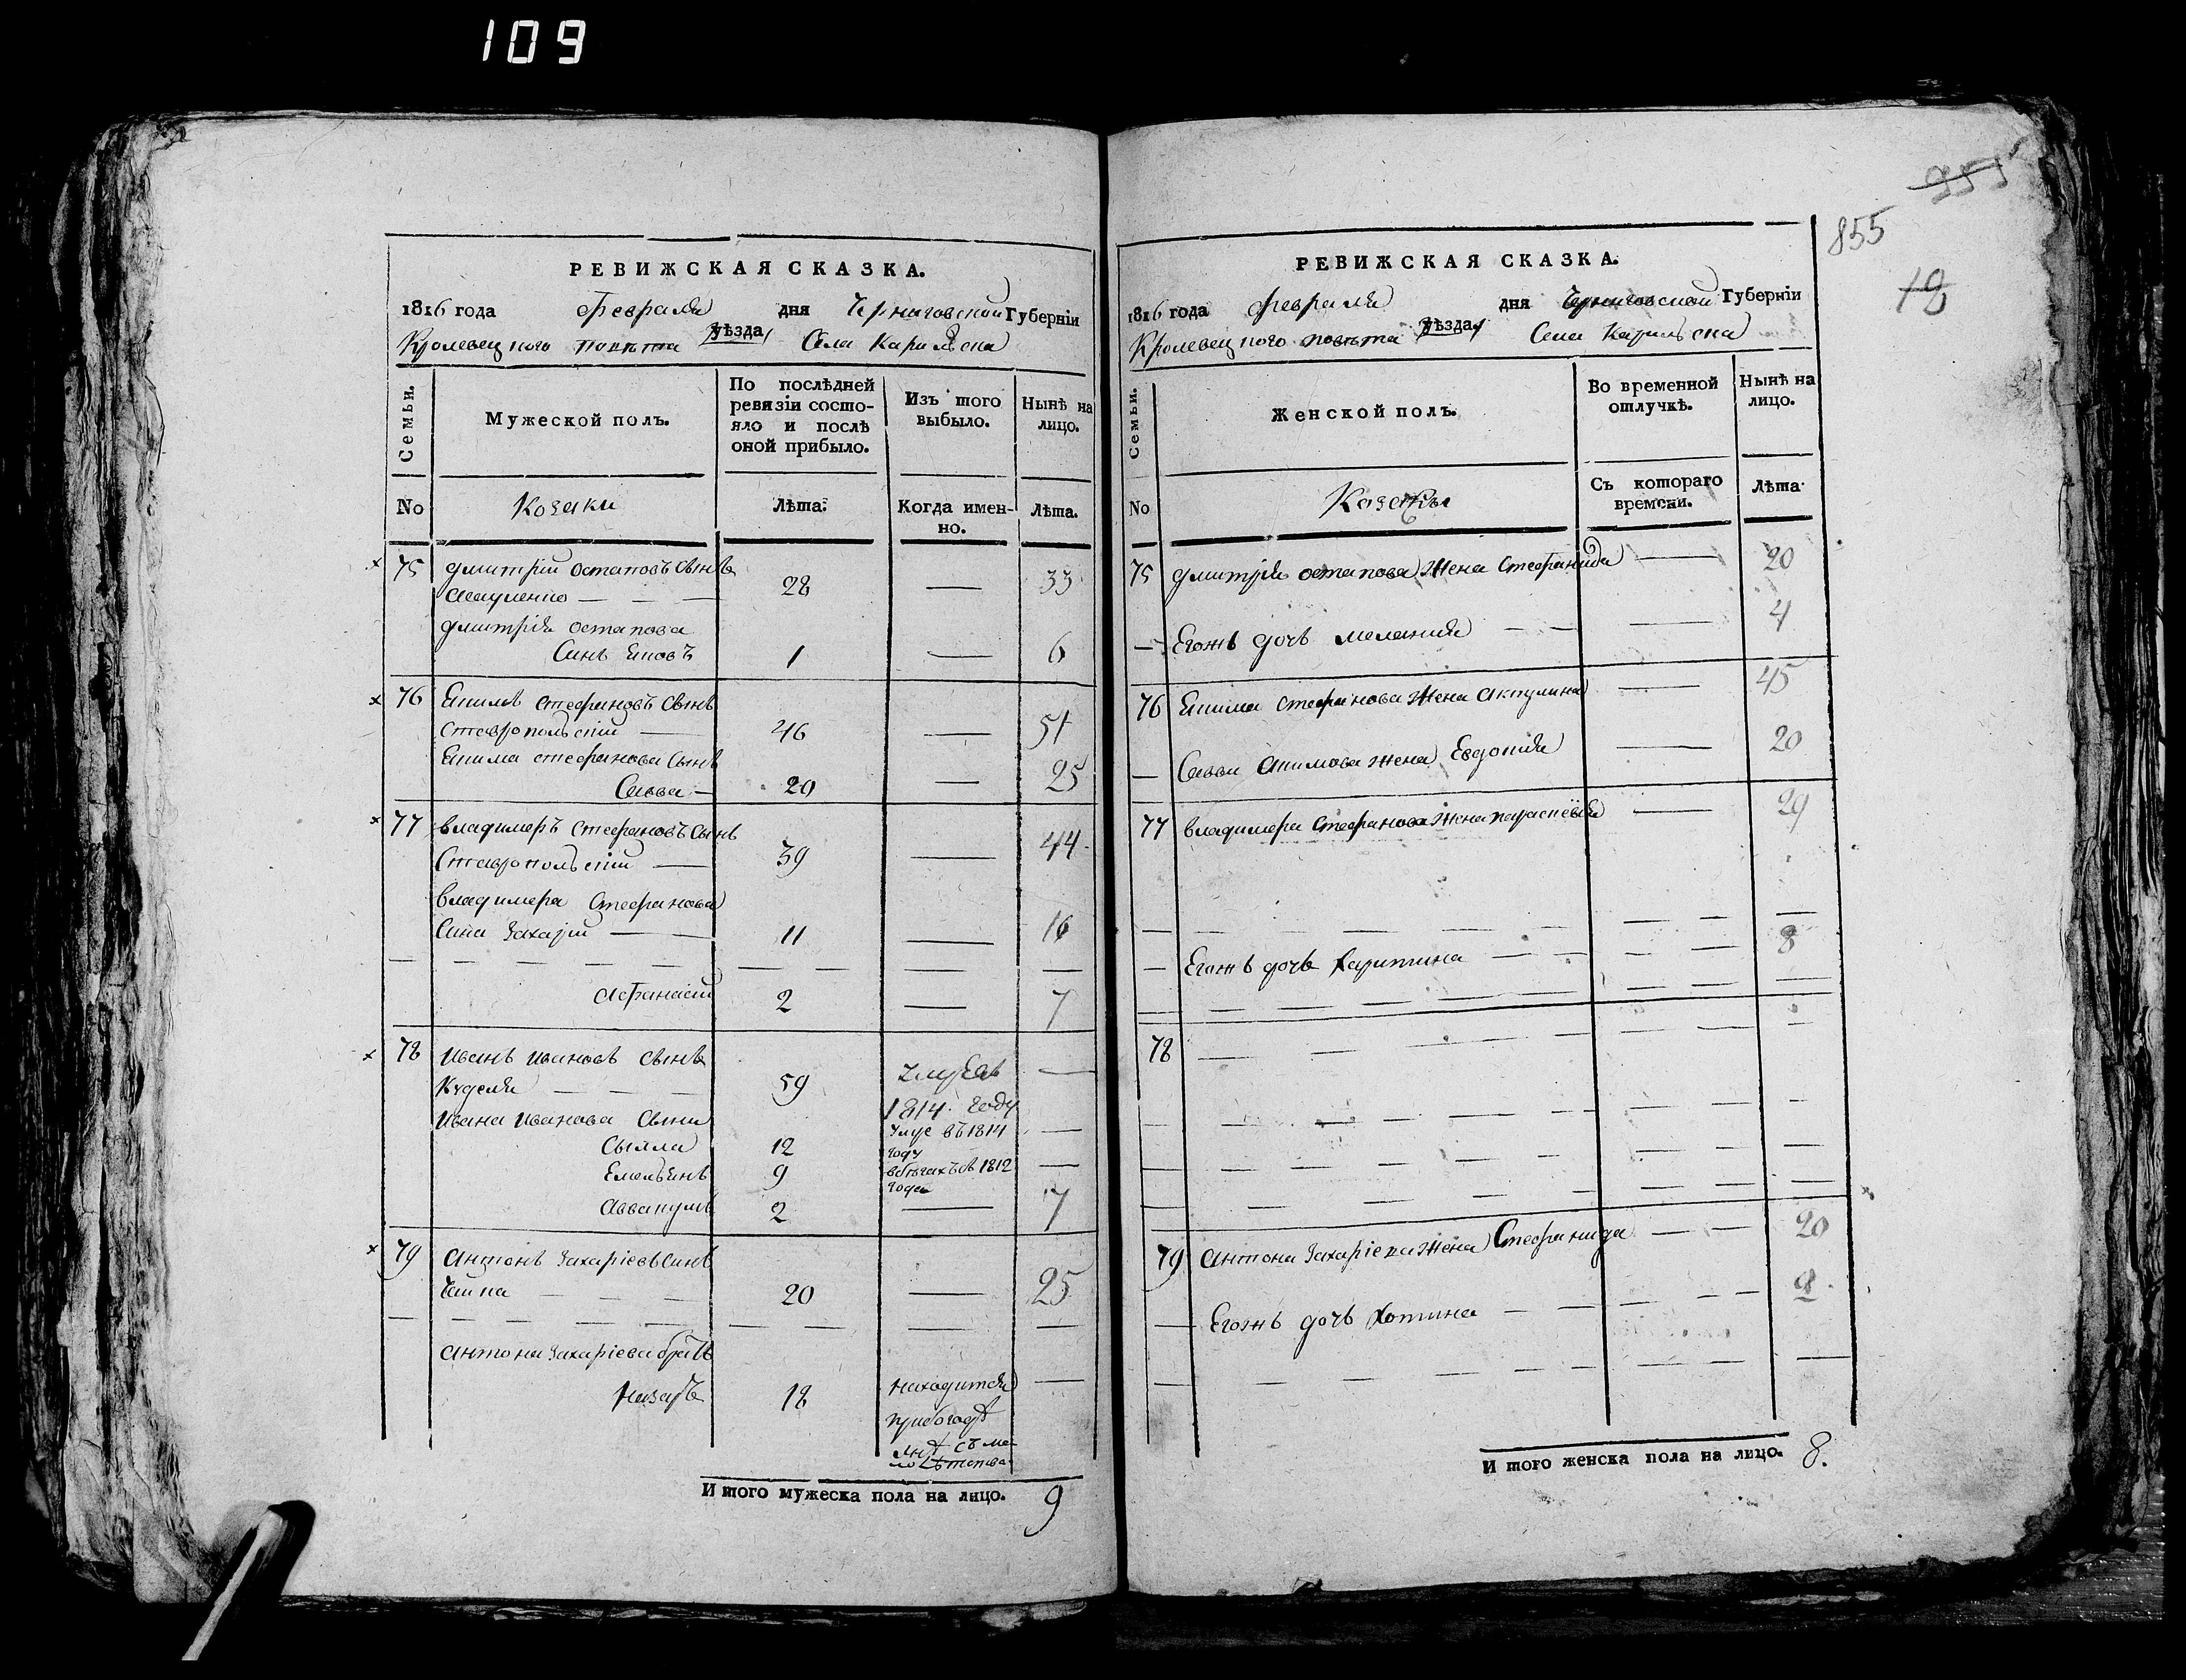 109
955
855
12
РЕВИЖСКАЯ СКАЗКА.
1816 года Февраля дня Черниговской Губернїи
Кролевецкого повѣта уѣзда, Села Карилска
Семьи.
Мужеской полъ.
По послѣдней ревизїи состояло и послѣ оной прибыло.
Изъ того выбыло.
Нынѣ на лицо.
No
Козаки
Лѣта.
Когда именно.
Лѣта.
75 Дмитрій Остаповъ сынъ
28 — 33
Дмитрія Остапова
Синъ 1 — 6
76 Екимъ Стефановъ сынъ
Ставропольскій — 46 — 51
Екима Стефанова сынъ
Савва — 20 — 25
77 Владимеръ Стефановъ сынъ
Ставропольскій — 39 — 44
Владимера Стефанова
Сина Захарій — 11 — 16
Афанасій 2 — 7
78 Иванъ Ивановъ сынъ
Куделя — 59 умре въ 1814 году —
Ивана Иванова сыни
12 умре въ 1814 году —
Емельянъ 9 въ бѣгахъ съ 1812 года —
Аввакумъ 2 — 7
79 Антонъ Захаріевъ синъ
20 — 25
Антона Захаріева братъ
Назаръ 18 находится при богадѣлнѣ съ малолѣтства —
И того мужеска пола на лицо. 9
РЕВИЖСКАЯ СКАЗКА.
1816 года Февраля дня Черниговской Губернїи
Кролевецкого повѣта уѣзда, Села Карилска
Семьи.
Женской полъ.
Во временной отлучкѣ.
Нынѣ на лицо.
No
Съ котораго времени.
Лѣта.
75 Дмитрія Остапова жена Стефанида — 20
— Егожъ дочь Меланія — 4
76 Екима Стефанова жена Акилина — 45
— Савви Акимова жена Евдокія — 20
77 Владимера Стефанова жена Параскевія — 29
— Егожъ дочь Харитина — 8
78
79 Антона Захаріева жена Стефанида — 20
Егожъ дочь Хотина — 8
И того женска пола на лицо. 8.